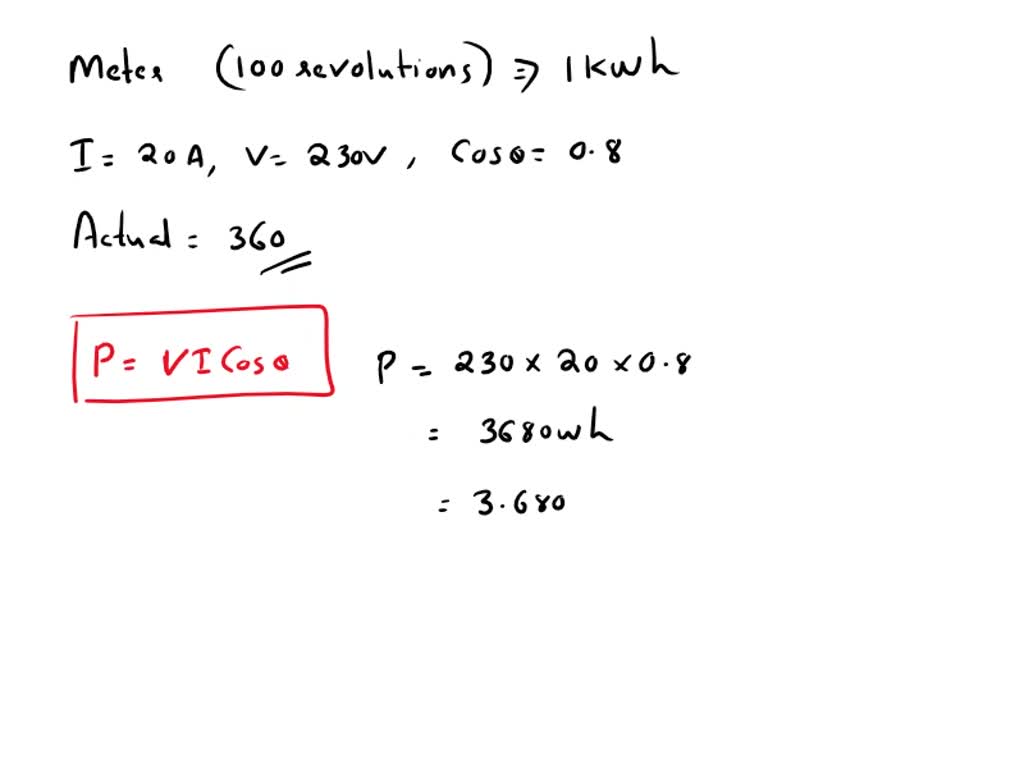 Meter (100 revolutions) ⇒ 1 kwh
I = 20A, V = 230V, Cosθ = 0.8
Actual = 360
P = VI Cosθ
P = 230 × 20 × 0.8
= 3680wh
= 3.680